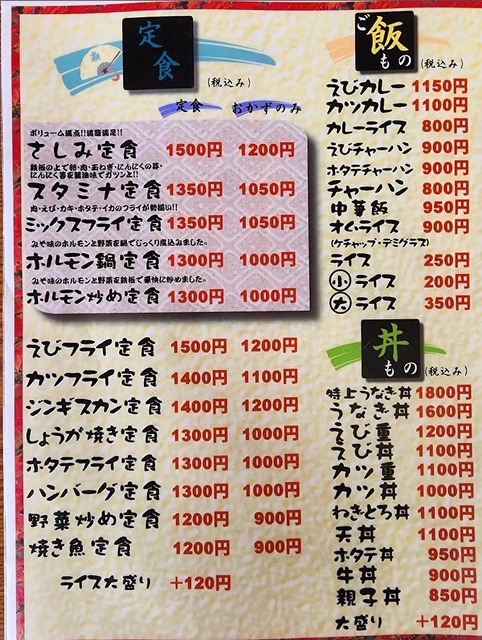 定食
(税込み)
定食 おかずのみ
ボリューム満点!!満腹満足!!
さしみ定食 1500円 1200円
鉄板の上で卵・肉・玉ねぎ・にんにくの芽・
にんにく等を醤油味でガツンと!!
スタミナ定食 1350円 1050円
肉・えび・カキ・ホタテ・イカのフライが勢揃い!!
ミックスフライ定食 1350円 1050円
みそ味のホルモンと野菜を鍋でじっくり煮込みました。
ホルモン鍋定食 1300円 1000円
みそ味のホルモンと野菜を鉄板で豪快に炒めました。
ホルモン炒め定食 1300円 1000円
えびフライ定食 1500円 1200円
カツフライ定食 1400円 1100円
ジンギスカン定食 1400円 1200円
しょうが焼き定食 1300円 1000円
ホタテフライ定食 1300円 1000円
ハンバーグ定食 1300円 1000円
野菜炒め定食 1200円 900円
焼き魚定食 1200円 900円
ライス大盛り +120円
ご飯もの
(税込み)
えびカレー 1150円
カツカレー 1100円
カレーライス 800円
えびチャーハン 900円
ホタテチャーハン 900円
チャーハン 800円
中華飯 950円
オムライス 900円
(ケチャップ・デミグラス)
ライス 250円
小ライス 200円
大ライス 350円
丼もの
(税込み)
特上うなぎ丼 1800円
うなぎ丼 1600円
えび重 1200円
えび丼 1100円
カツ重 1100円
カツ丼 1000円
わきとろ丼 1100円
天丼 1100円
ホタテ丼 950円
牛丼 900円
親子丼 850円
大盛り +120円